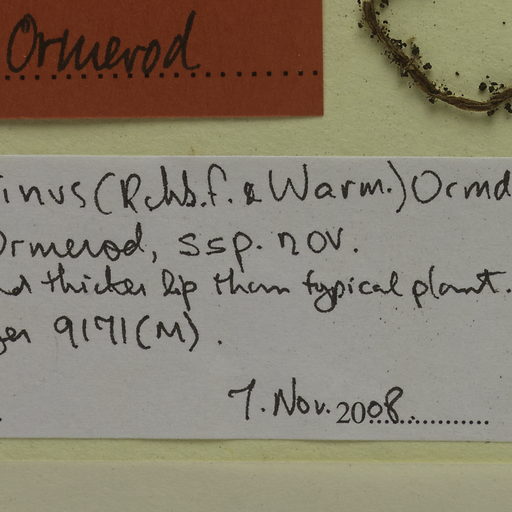 Ormerod
inus (Rchb.f. & Warm.) Ormd
Ormerod, ssp. nov.
nd thicker lip than typical plant.
er 9171(M).
7. Nov. 2008